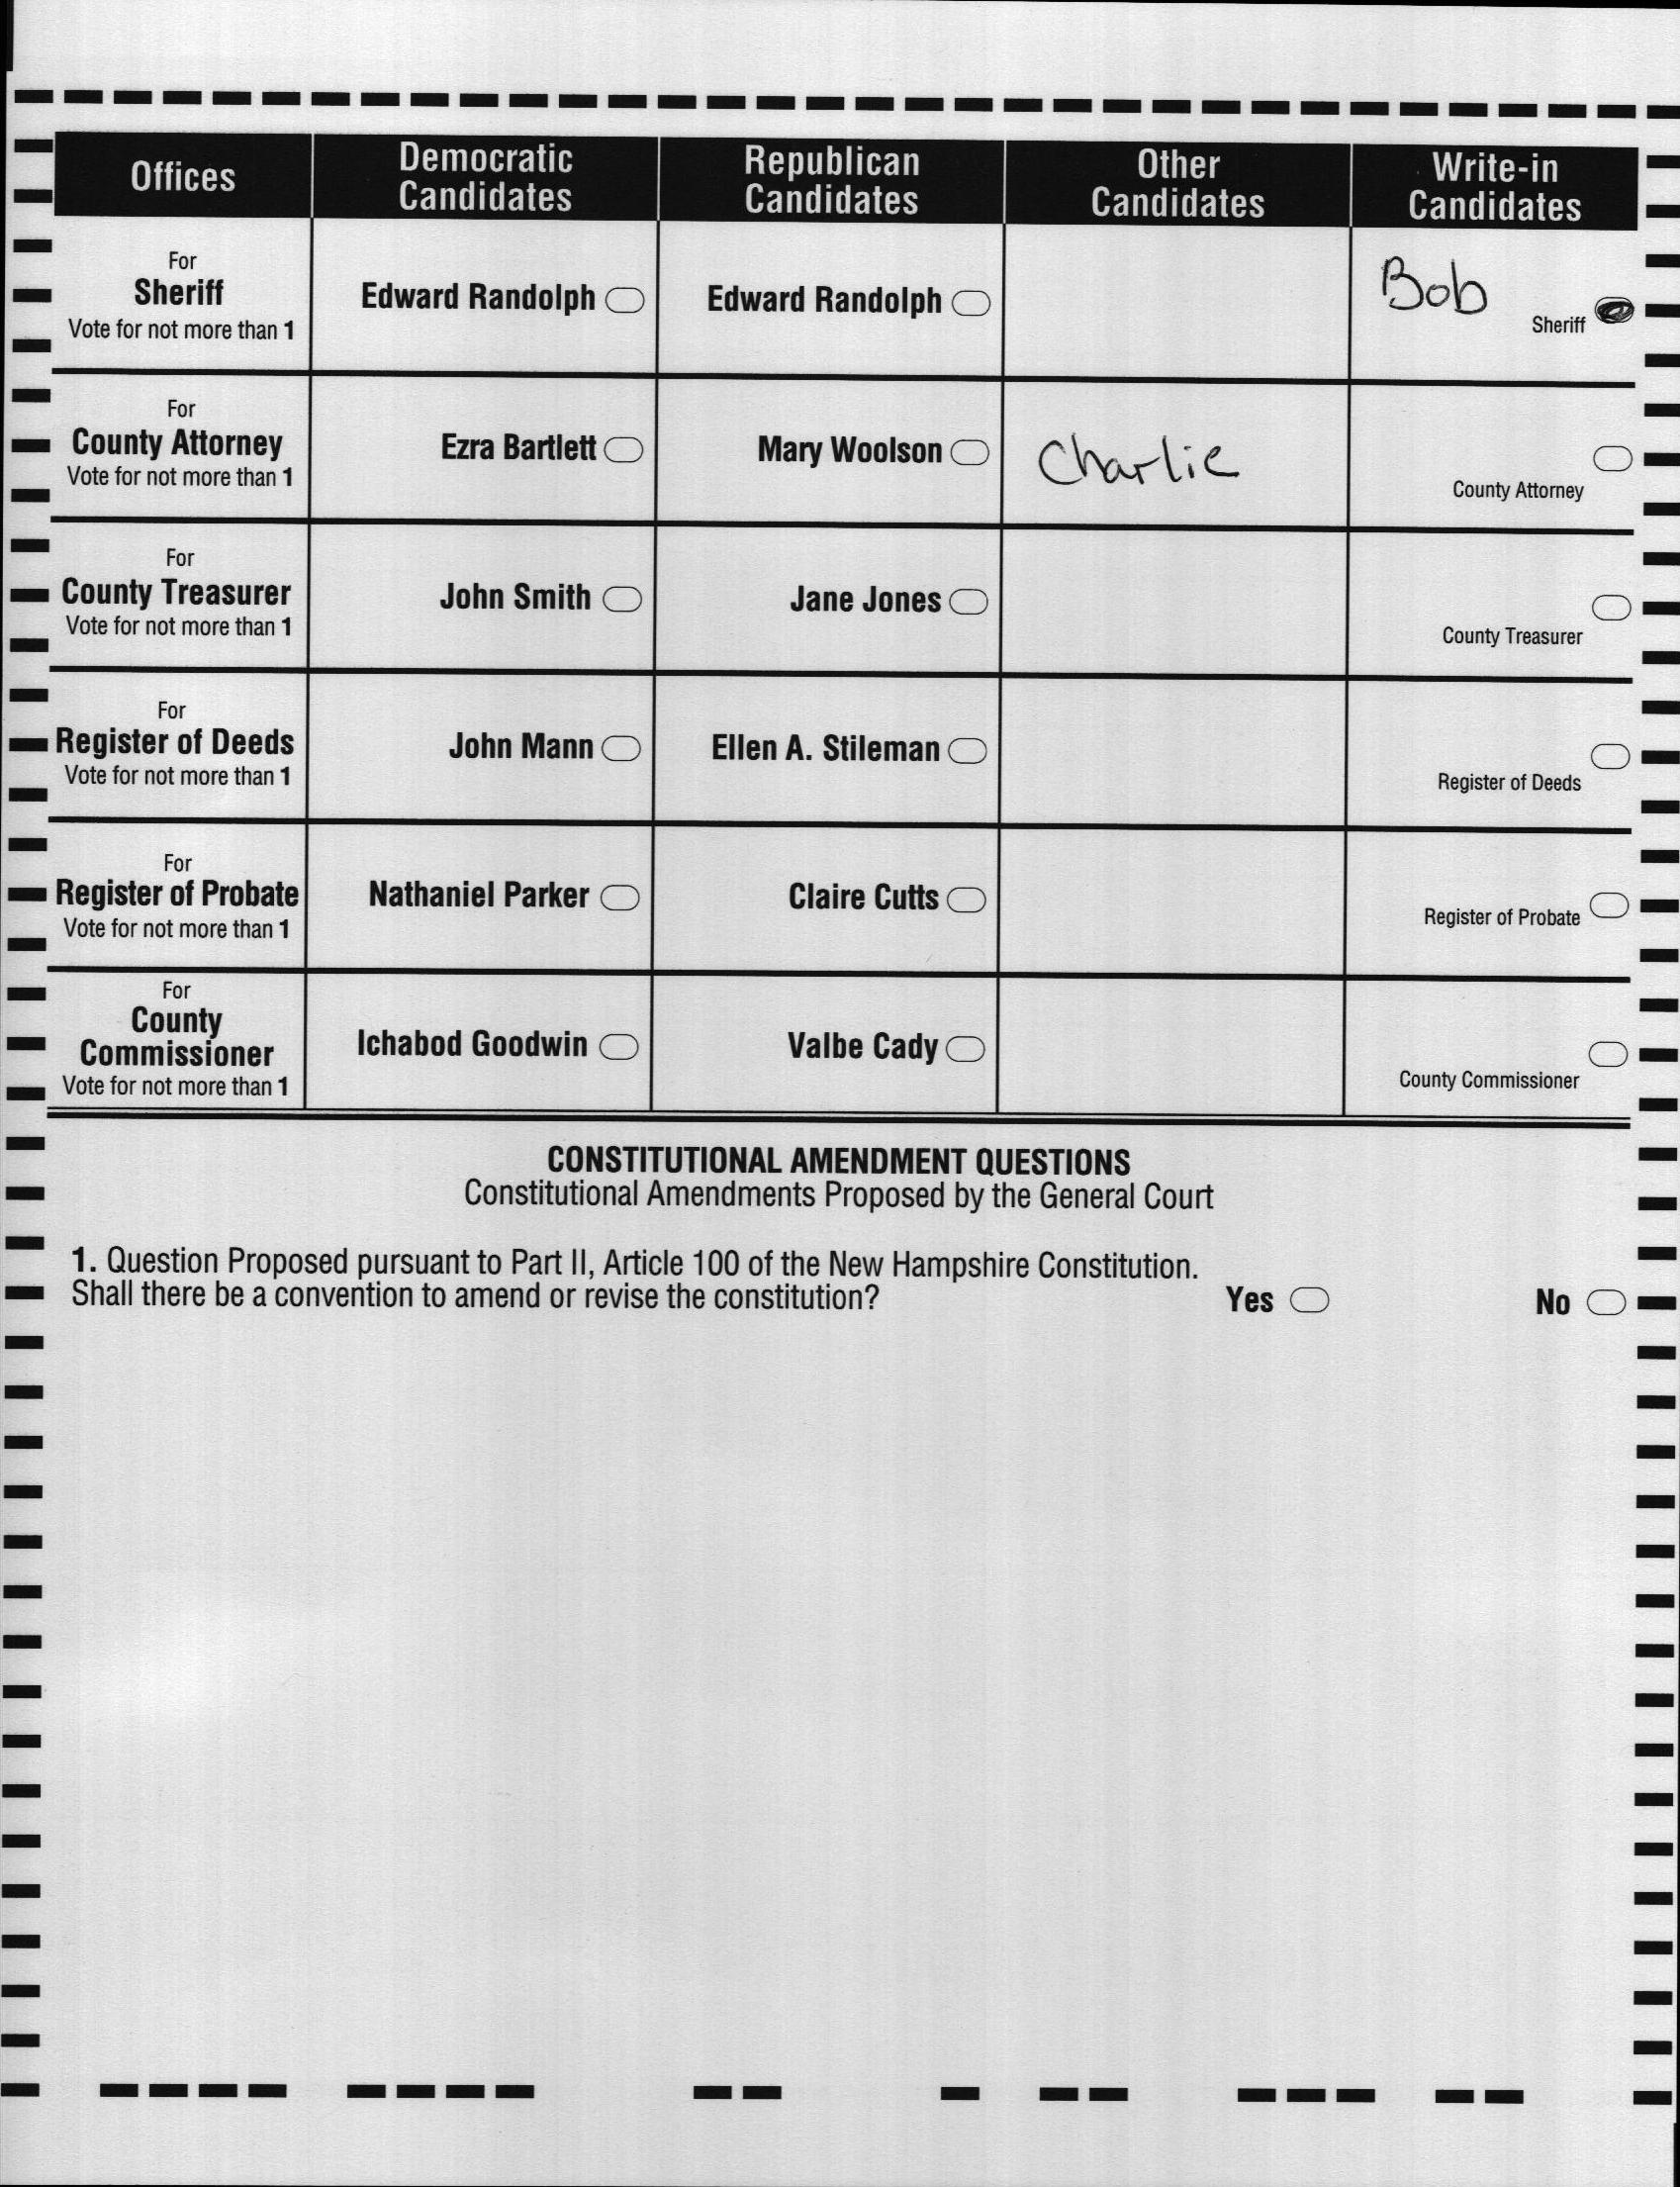 Offices
Democratic Candidates
Republican Candidates
Other Candidates
Write-in Candidates
For
Sheriff
Vote for not more than 1
Edward Randolph
Edward Randolph
Bob
Sheriff
For
County Attorney
Vote for not more than 1
Ezra Bartlett
Mary Woolson
Charlie
County Attorney
For
County Treasurer
Vote for not more than 1
John Smith
Jane Jones
County Treasurer
For
Register of Deeds
Vote for not more than 1
John Mann
Ellen A. Stileman
Register of Deeds
For
Register of Probate
Vote for not more than 1
Nathaniel Parker
Claire Cutts
Register of Probate
For
County
Commissioner
Vote for not more than 1
Ichabod Goodwin
Valbe Cady
County Commissioner
CONSTITUTIONAL AMENDMENT QUESTIONS
Constitutional Amendments Proposed by the General Court
1. Question Proposed pursuant to Part II, Article 100 of the New Hampshire Constitution.
Shall there be a convention to amend or revise the constitution?
Yes
No